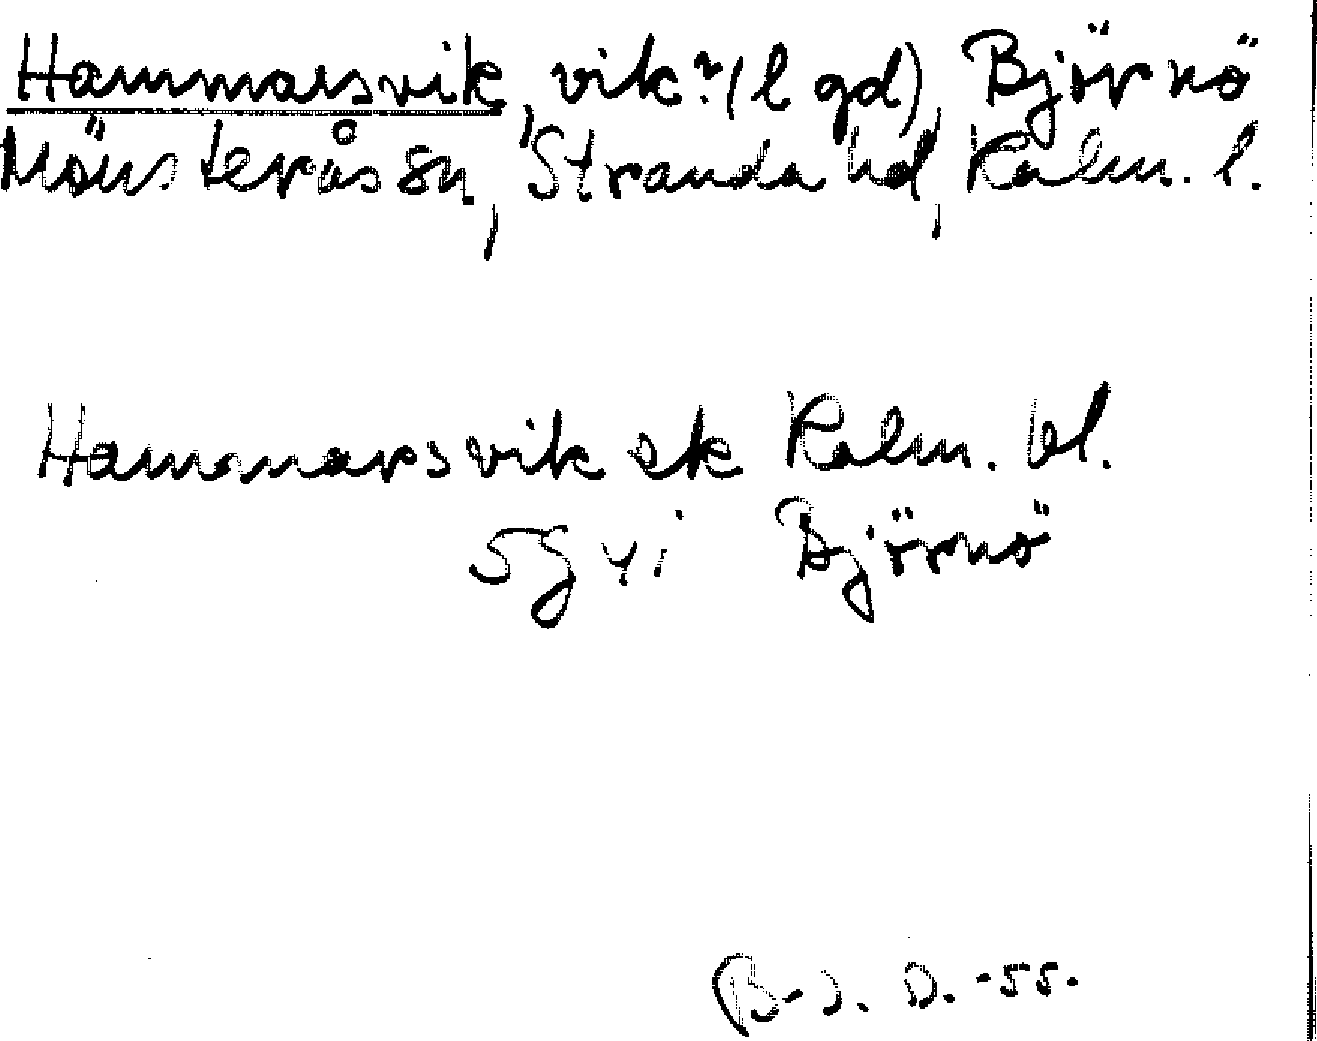 Hammarsvik, vik? (l gd), Björnö
Mönsterås sn, Stranda hd, Kalm. l.
Hammarsvik sk Kalm. bl.
5g yi Björnö
B-J. D. -55.